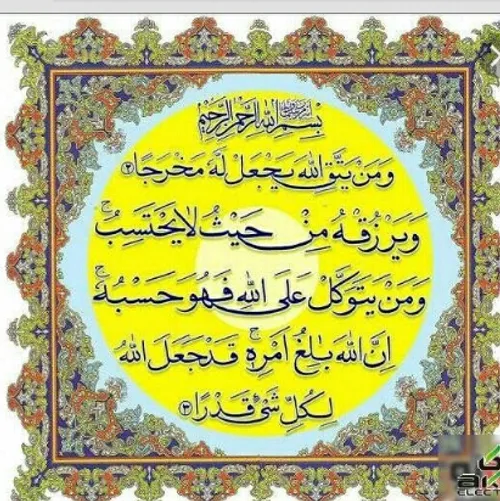 بِسْمِ اللهِ الرَّحْمٰنِ الرَّحِيْمِ
وَمَنْ يَّتَّقِ اللهَ يَجْعَلْ لَّهٗ مَخْرَجًا ۙ﴿۲﴾
وَّيَرْزُقْهُ مِنْ حَيْثُ لَا يَحْتَسِبُ ؕ
وَمَنْ يَّتَوَكَّلْ عَلَى اللهِ فَهُوَ حَسْبُهٗ ؕ
اِنَّ اللهَ بَالِغُ اَمْرِهٖ ؕ قَدْ جَعَلَ اللهُ
لِكُلِّ شَیْءٍ قَدْرًا ﴿۳﴾